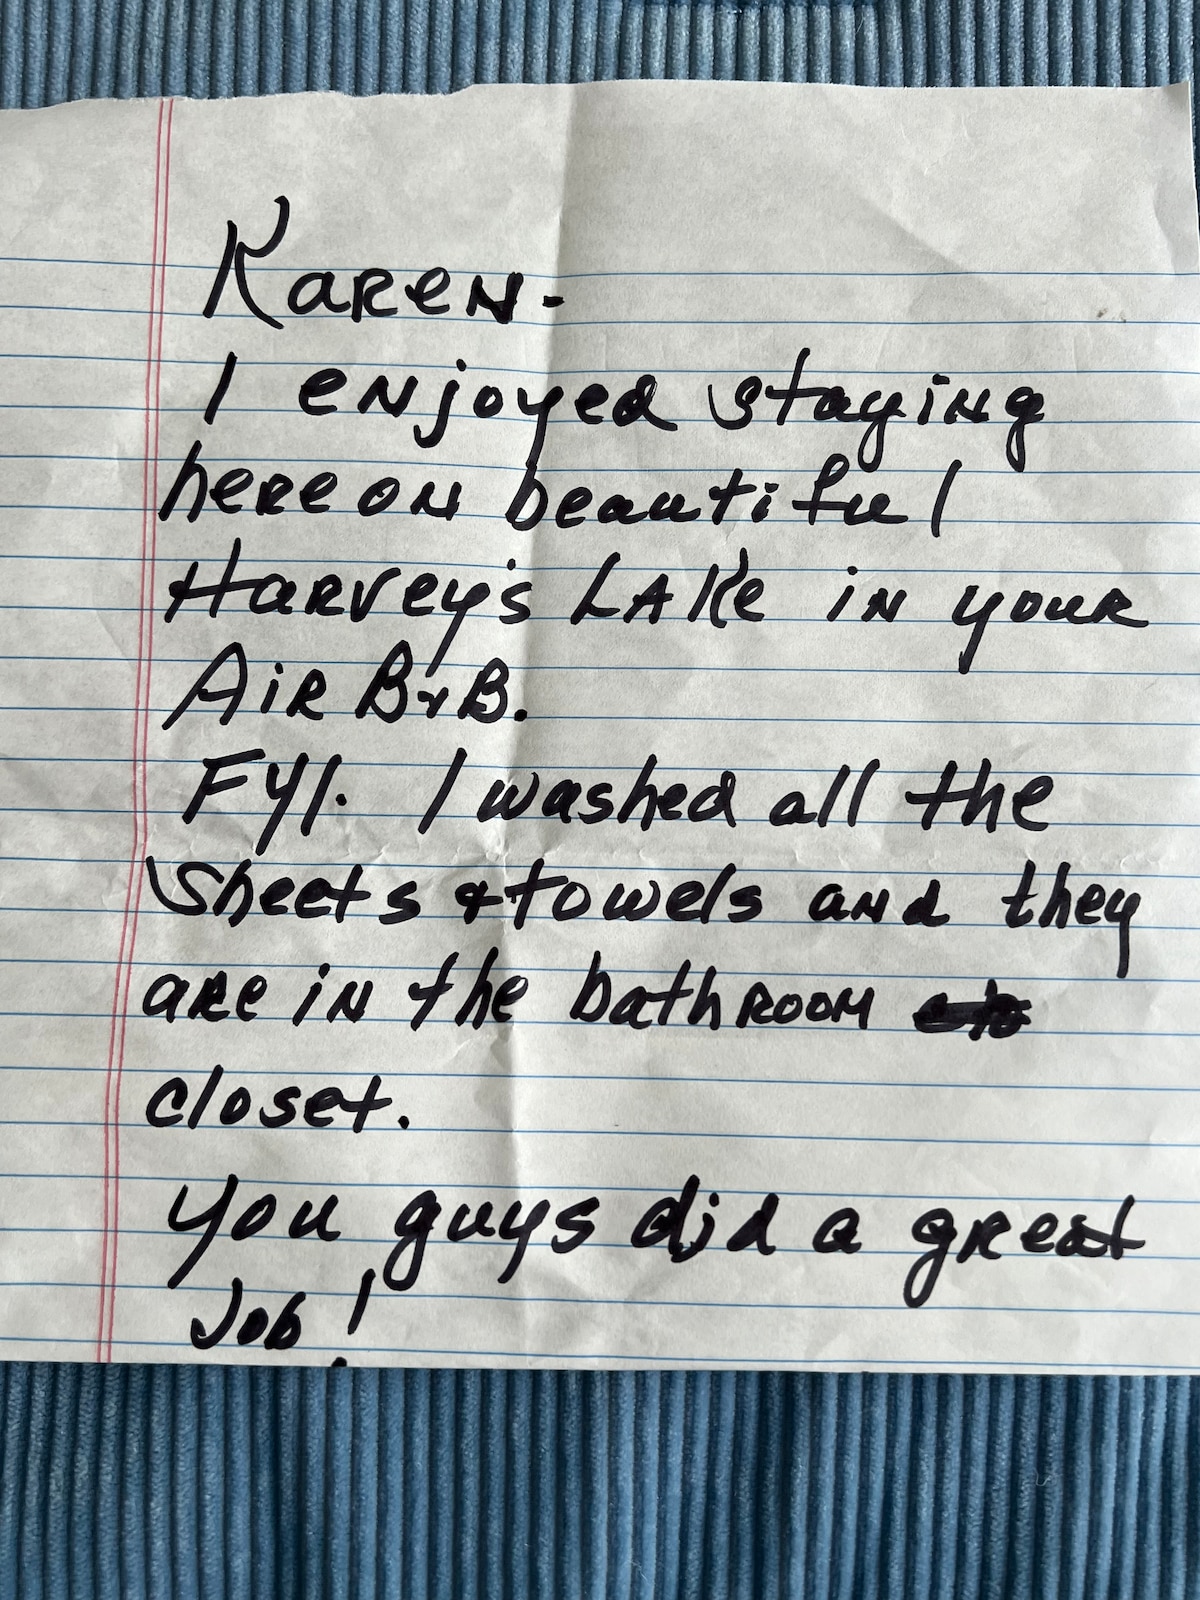 Karen-
I enjoyed staying
here on beautiful
Harvey's Lake in your
Air B&B.
FYI. I washed all the
Sheets & towels and they
are in the bathroom
closet.
You guys did a great
Job!